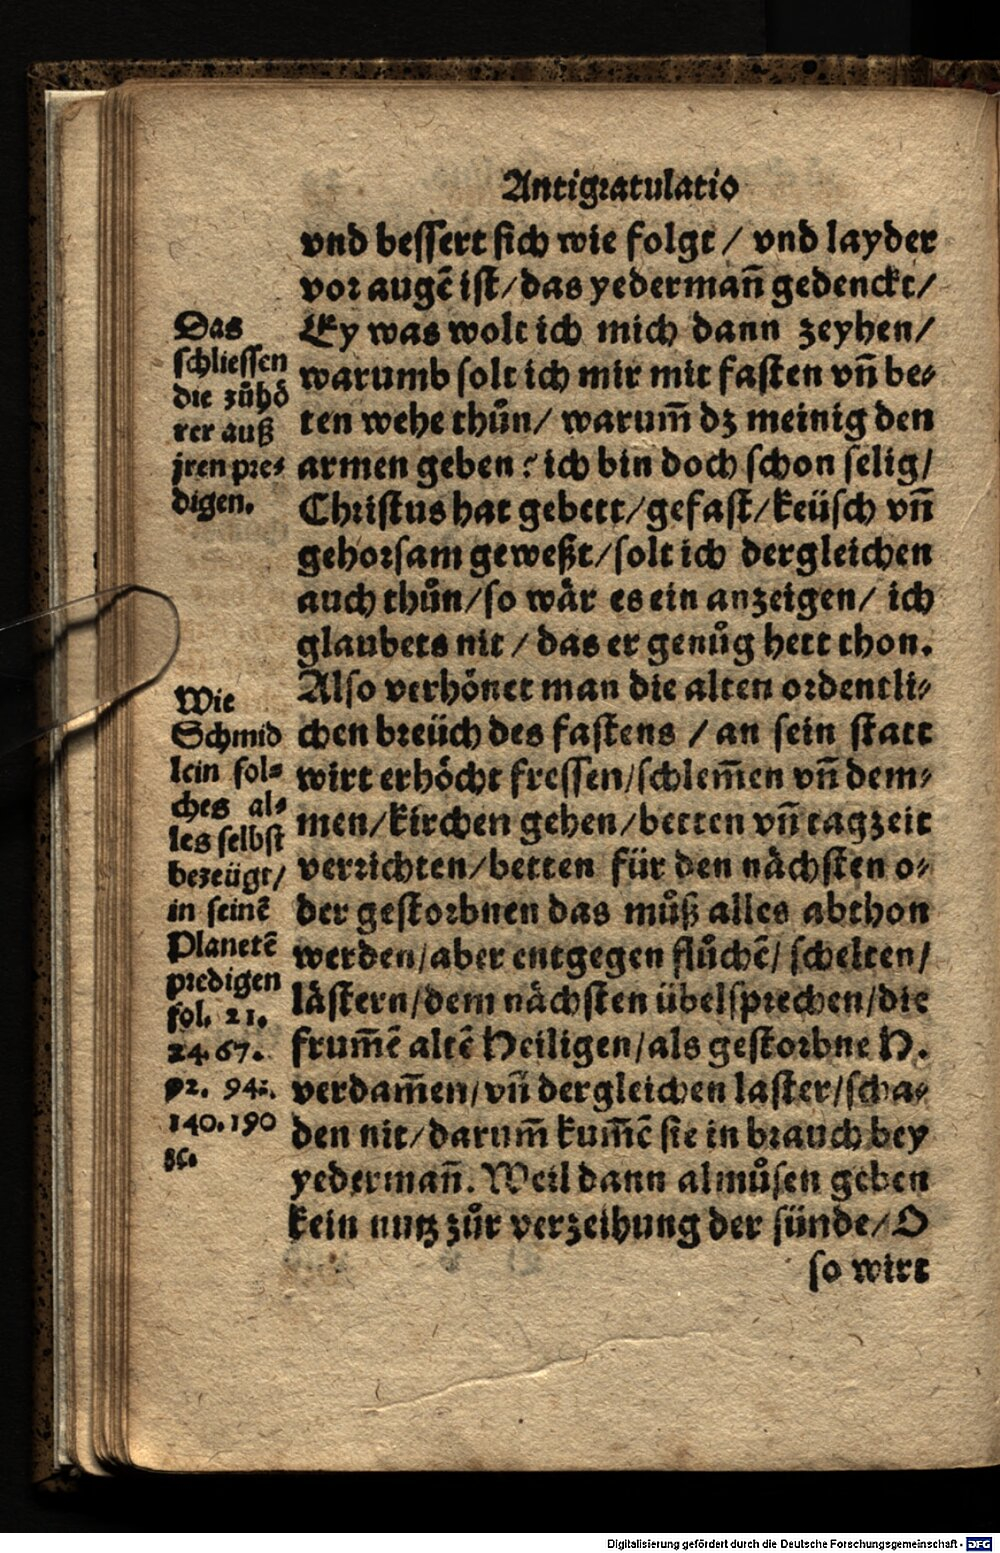 Antigratulatio
vnd bessert sich wie folgt / vnd layder
vor augē ist / das yedermañ gedenckt /
Ey was wolt ich mich dann zeyhen /
warumb solt ich mir mit fasten vñ be⸗
ten wehe thůn / warum̃ dz meinig den
armen geben? ich bin doch schon selig /
Christus hat gebett / gefast / keüsch vñ
gehorsam geweßt / solt ich dergleichen
auch thůn / so wår es ein anzeigen / ich
glaubets nit / das er genůg hett thon.
Also verhönet man die alten ordentli⸗
chen breüch des fastens / an sein statt
wirt erhöcht fressen / schlem̃en vñ dem⸗
men / kirchen gehen / betten vñ tagzeit
verrichten / betten für den nächsten o⸗
der gestorbnen das můß alles abthon
werden / aber entgegen flůchē / schelten /
lästern / dem nächsten übelsprechen / die
frum̃ē altē Heiligen / als gestorbne H.
verdam̃en / vñ dergleichen laster / scha⸗
den nit / darum̃ kum̃ē sie in brauch bey
yedermañ. Weil dann almůsen geben
kein nutz zůr verzeihung der sünde / O
so wirt
Das
schliessen
die zůhö
rer auß
jren pre⸗
digen.
Wie
Schmid
lein sol⸗
ches al⸗
les selbst
bezeügt /
in seinē
Planetē
predigen
fol. 21.
24. 67.
92. 94.
140. 190
ꝛc.
Digitalisierung gefördert durch die Deutsche Forschungsgemeinschaft - DFG